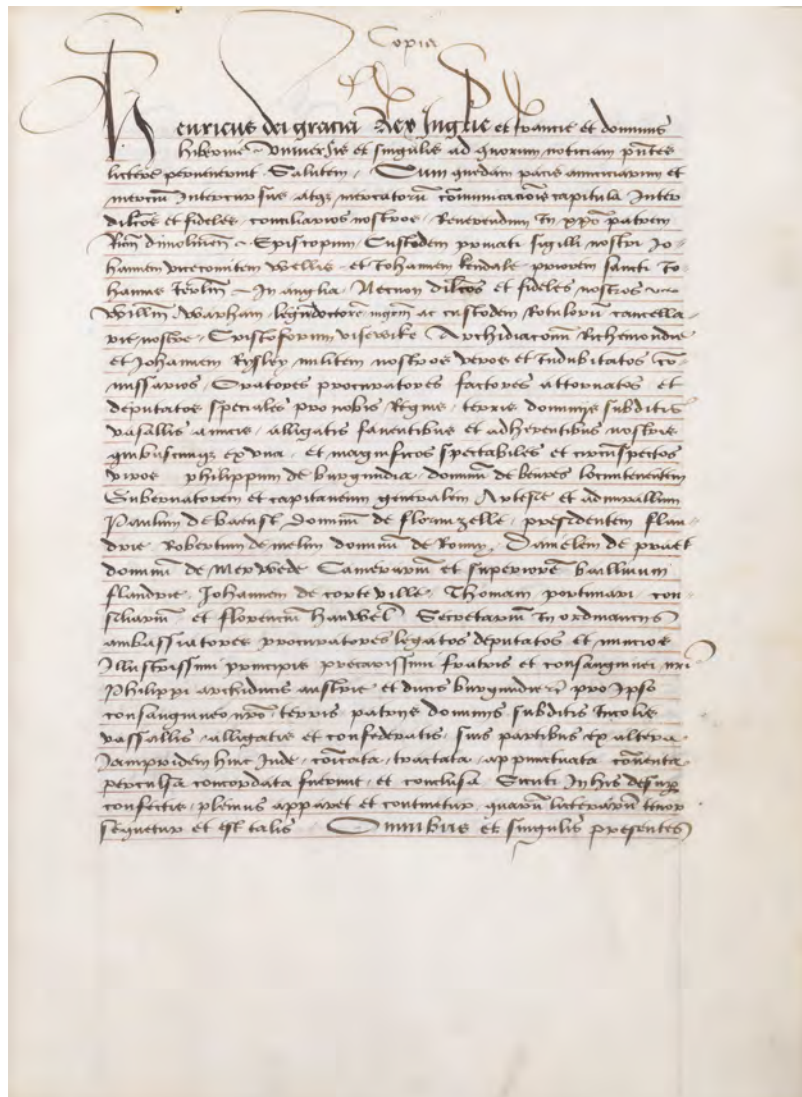 Copia
Henricus dei gracia Rex Anglie et francie et dominus
hibernie Universis et singulis ad quorum noticiam pntes
lictere pervenerint Salutem, Cum quedam pacis amiciciarum et
mercium Intercursus atqz mercatorū cōmunicacōis capitula Inter
dilcos et fideles consiliarios nostros Reverendum In xpo patrem
Ricm dunolmen Episcopum Custodem privati sigilli nostri Jo-
hannem vicecomitem Wellis et Johannem kendale priorem sancti Jo-
hannis Jerlm In anglia Necnon dilcos et fideles nostros
Willm Warham legum doctorē ac custodem Rotulorū cancella-
rie nostre Cristoforum Urswike Archidiaconū Richemondie
et Johannem Rysley militem nostros veros et Indubitatos cō-
missarios Oratores procuratores factores attornatos et
deputatos speciales pro nobis Regnis terris dominiis subditis
vasallis amicis alligatis faventibus et adherentibus nostris
quibuscunqz ex una et magnificos spectabiles et circūspectos
viros philippum de burgundia dominū de bevres locumtenentem
Gubernatorem et capitaneum generalem Artesie et admirallum
Paulum de baenst Dominū de formizelle presidentem flan-
drie Robertum de melun dominū de Ronny Danielem de praet
dominū de Merwede Camerariū et superiorē baillivum
flandrie Johannem de corteville Thomam portunari con-
siliariū et florenciū hauwel Secretariū In ordinariis
ambassiatores procuratores legatos deputatos et nuncios
Illustrissimi principis precarissimi fratris et consanguinei nri
Philippi archiducis austrie et ducis burgundie pro Ipso
consanguineo nrō terris patriis dominiis subditis Incolis
vassallis alligatis et confederatis suis partibus ex altera
Jampridem hinc Inde cōicata tractata appunctuata cōventa
percussa concordata fuerint et conclusa Sicuti In his desup
confectis plenius apparet et continetur quarū licterarū tenor
sequetur et est talis Omnibus et singulis presentes